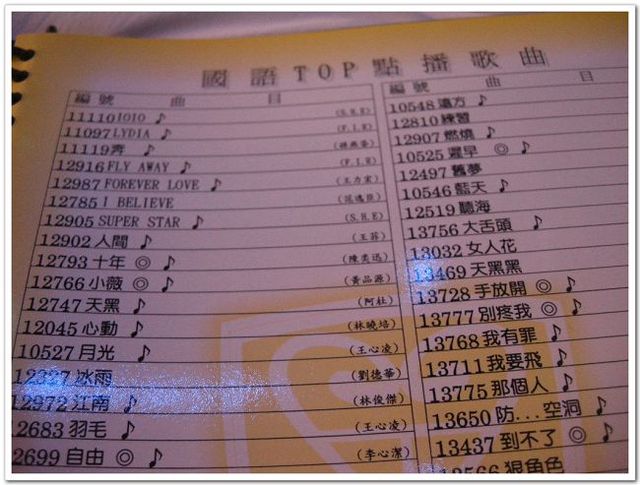 國語TOP點播歌曲
編號 曲 目
11110 IOIO ♪ (S.H.E)
11097 LYDIA ♪ (F.I.R)
11119 奔 ♪ (孫燕姿)
12916 FLY AWAY ♪ (F.I.R)
12987 FOREVER LOVE ♪ (王力宏)
12785 I BELIEVE (范逸臣)
12905 SUPER STAR ♪ (S.H.E)
12902 人間 ♪ (王菲)
12793 十年 ◎ ♪ (陳奕迅)
12766 小薇 ◎ ♪ (黃品源)
12747 天黑 ♪ (阿杜)
12045 心動 ♪ (林曉培)
10527 月光 ♪ (王心凌)
12327 冰雨 (劉德華)
12972 江南 ♪ (林俊傑)
2683 羽毛 ♪ (王心凌)
2699 自由 ◎ ♪ (李心潔)
編號 曲 目
10548 遠方 ♪
12810 練習
12907 燃燒 ♪
10525 遲早 ◎ ♪
12497 舊夢
10546 藍天 ♪
12519 聽海
13756 大舌頭 ♪
13032 女人花
13469 天黑黑
13728 手放開 ◎ ♪
13777 別疼我 ◎ ♪
13768 我有罪 ♪
13711 我要飛 ♪
13775 那個人 ♪
13650 防...空洞 ♪
13437 到不了 ◎ ♪
13566 狠角色